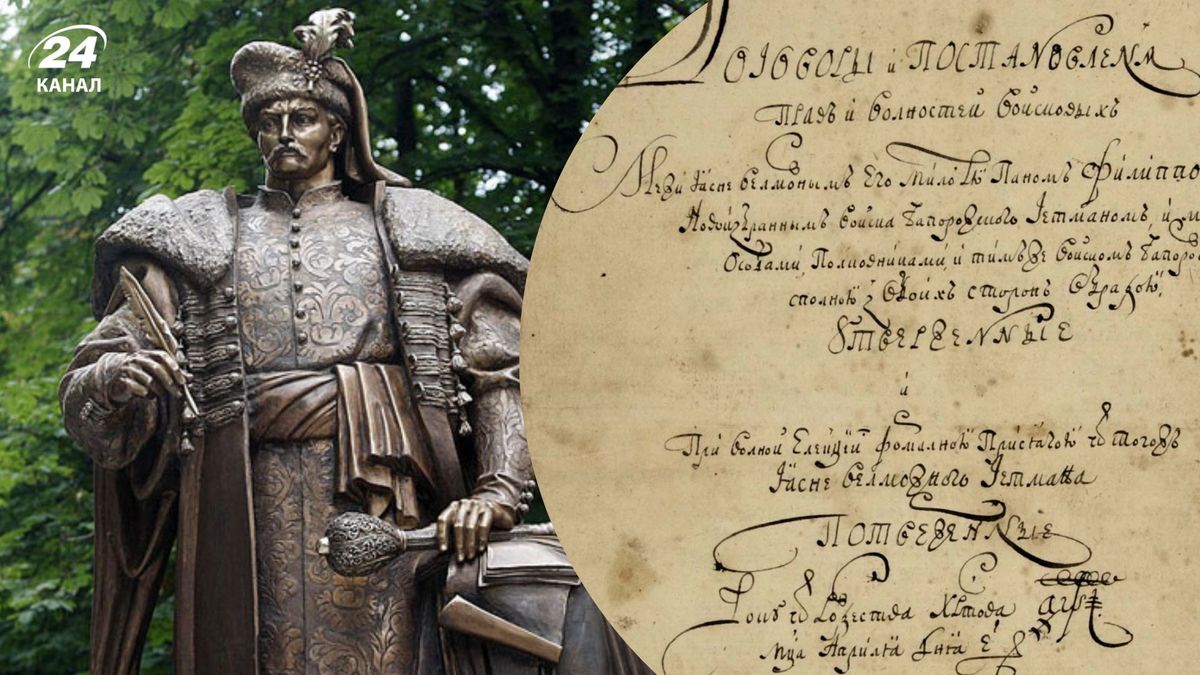 24
КАНАЛ
ДОГОВОРЫ и ПОСТАНОВЛЕНѦ
Правъ и волностей войсковыхъ
Межи Ясне велможнымъ Его милостю Паномъ Филиппо
Новоизбраннымъ войска Запорозского Гетманомъ, и м
Особами, Полковниками, и тимъже войскомъ Запоро
сполною з обойхъ сторон обрадою,
УТВЕРЖЕННЫЕ
и
При волной Елекцій формалною Присягою ѿ тогожъ
Ясне велможного Гетмана
ПОТВЕРЖЕННЫЕ
Року ѿ Рожества Христова
мца Априлѧ